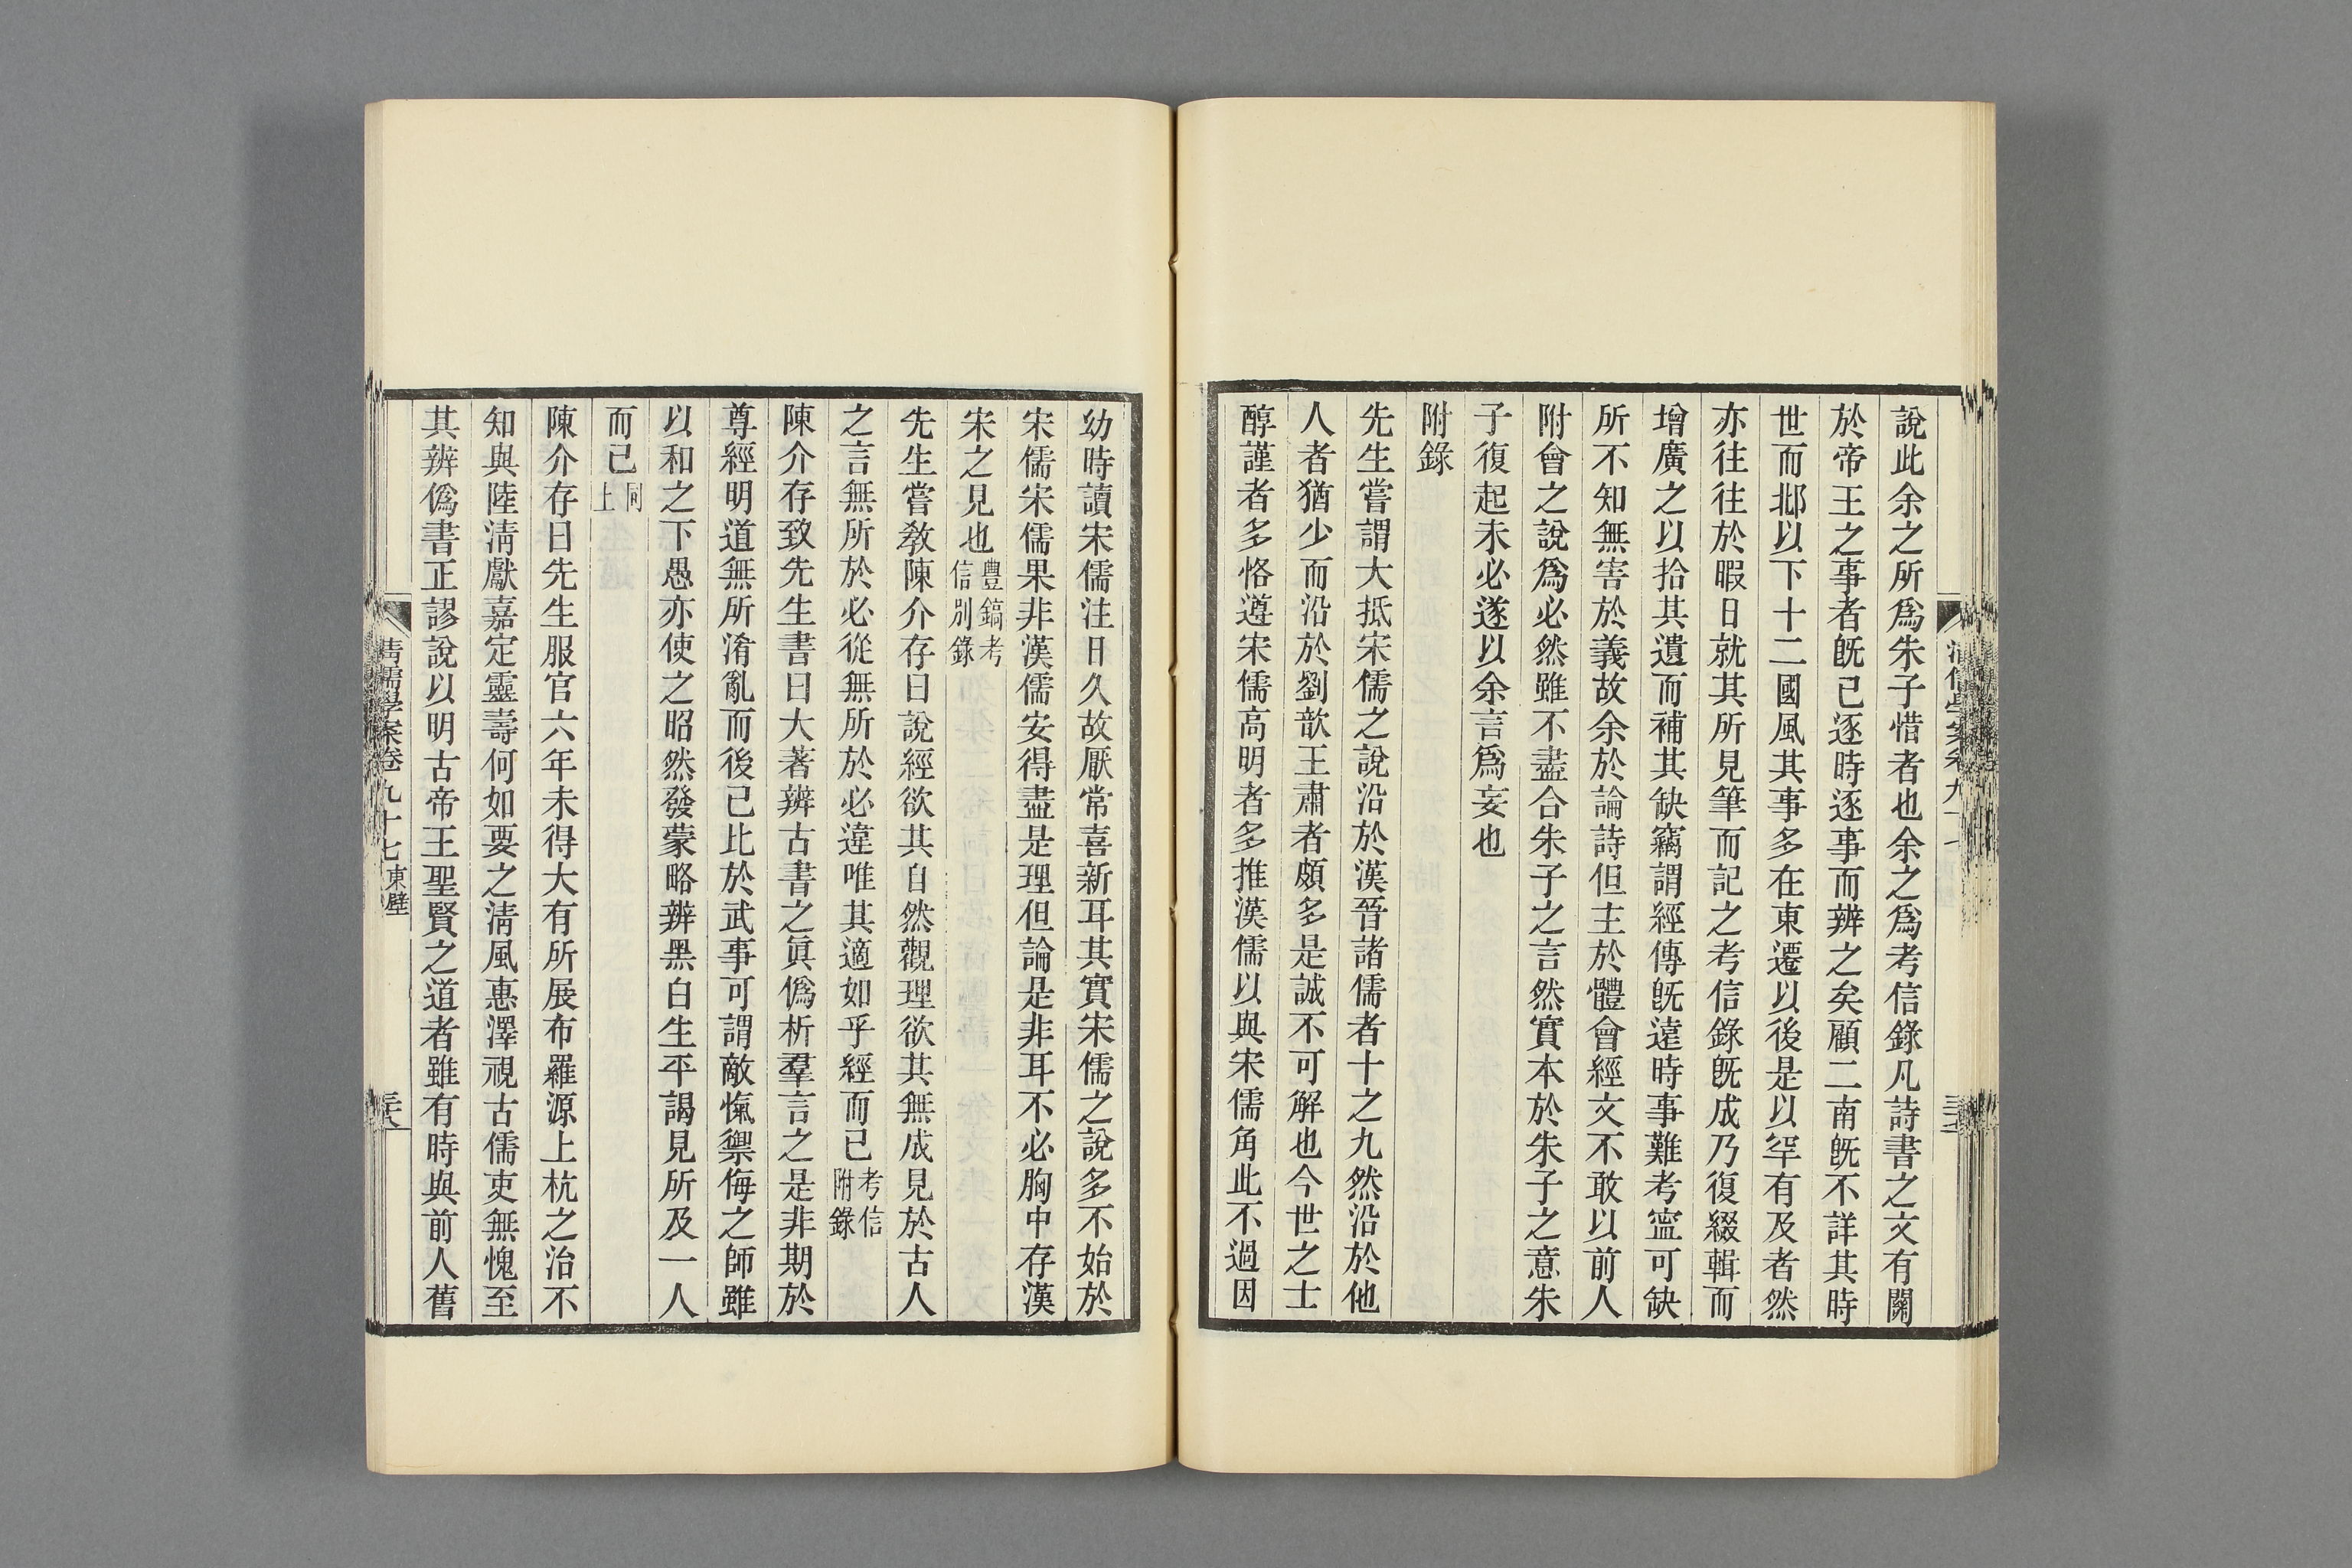 說此余之所爲朱子惜者也余之爲考信錄凡詩書之文有關
於帝王之事者旣已逐時逐事而辨之矣顧二南旣不詳其時
世而邶以下十二國風其事多在東遷以後是以罕有及者然
亦往往於暇日就其所見筆而記之考信錄旣成乃復綴輯而
增廣之以拾其遺而補其缺竊謂經傳旣遠時事難考寧可缺
所不知無害於義故余於論詩但主於體會經文不敢以前人
附會之說爲必然雖不盡合朱子之言然實本於朱子之意朱
子復起未必遂以余言爲妄也
附錄
先生嘗謂大抵宋儒之說沿於漢晉諸儒者十之九然沿於他
人者猶少而沿於劉歆王肅者頗多是誠不可解也今世之士
醇謹者多恪遵宋儒高明者多推漢儒以與宋儒角此不過因
幼時讀宋儒注日久故厭常喜新耳其實宋儒之說多不始於
宋儒宋儒果非漢儒安得盡是理但論是非耳不必胸中存漢
宋之見也豐鎬考信別錄
先生嘗教陳介存曰說經欲其自然觀理欲其無成見於古人
之言無所於必從無所於必違唯其適如乎經而已考信附錄
陳介存致先生書曰大著辨古書之眞僞析羣言之是非期於
尊經明道無所淆亂而後已比於武事可謂敵愾禦侮之師雖
以和之下愚亦使之昭然發蒙略辨黑白生平謁見所及一人
而已同上
陳介存曰先生服官六年未得大有所展布羅源上杭之治不
知與陸淸獻嘉定靈壽何如要之淸風惠澤視古儒吏無愧至
其辨僞書正謬說以明古帝王聖賢之道者雖有時與前人舊
淸儒學案卷九十七 東壁